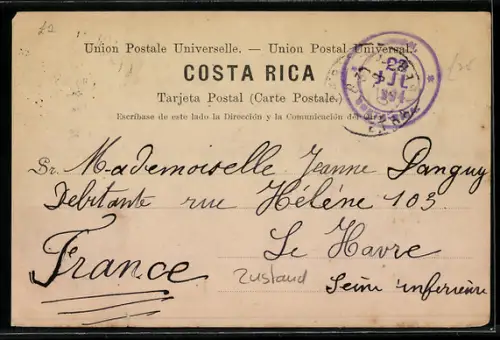 Union Postale Universelle. — Union Postal Universal.
COSTA RICA
Tarjeta Postal (Carte Postale.
Escríbase de este lado la Dirección y la Comunicación del
23
JUL
Sr. Mademoiselle Jeanne Danguy
Debitante rue Hélène 103
Le Havre
France
Zustand
Seine inferieure